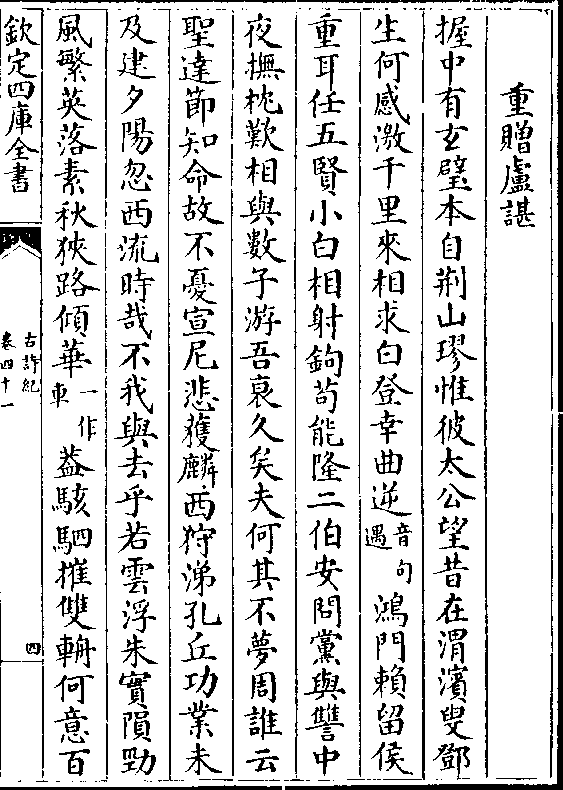 重贈盧諶
握中有玄璧本自荆山璆惟彼太公望昔在渭濱叟鄧
生何感激千里來相求白登幸曲逆音句遇鴻門賴留侯
重耳任五賢小白相射鉤苟能隆二伯安問黨與讐中
夜撫枕歎相與數子游吾衰久矣夫何其不夢周誰云
聖達節知命故不憂宣尼悲獲麟西狩涕孔丘功業未
及建夕陽忽西流時哉不我與去乎若雲浮朱實隕勁
風繁英落素秋狹路傾華一作車葢駭駟摧雙輈何意百
欽定四庫全書
古詩紀
卷四十一
四